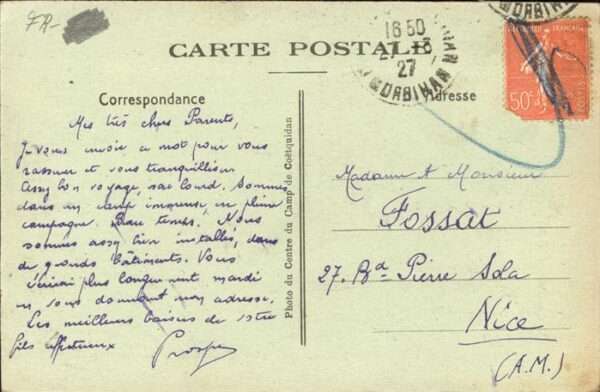 FR-
CARTE POSTALE
16 50
27
MORBIHAN
MORBIHAN
Correspondance
Adresse
RÉPUBLIQUE FRANÇAISE
50c
POSTES
Mes très chers Parents,
Je vous envoie ce mot pour vous
rassurer et vous tranquilliser
Assez bon voyage, sac lourd. Sommes
dans un camp immense en pleine
campagne. Beau temps. Nous
sommes assez bien installés, dans
de grands bâtiments. Vous
écrirai plus longuement mardi
en vous donnant mon adresse.
Les meilleurs baisers de votre
fils affectueux
Prosper
Photo du Centre du Camp de Coëtquidan
Madame et Monsieur
Fossat
27. Bd Pierre Sola
Nice
(A.M.)